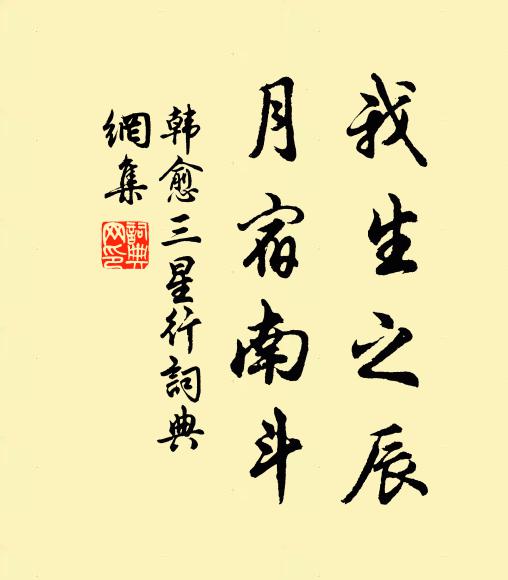 我生之辰
月宿南斗
韩愈三星行词典
網集
詞典
网印